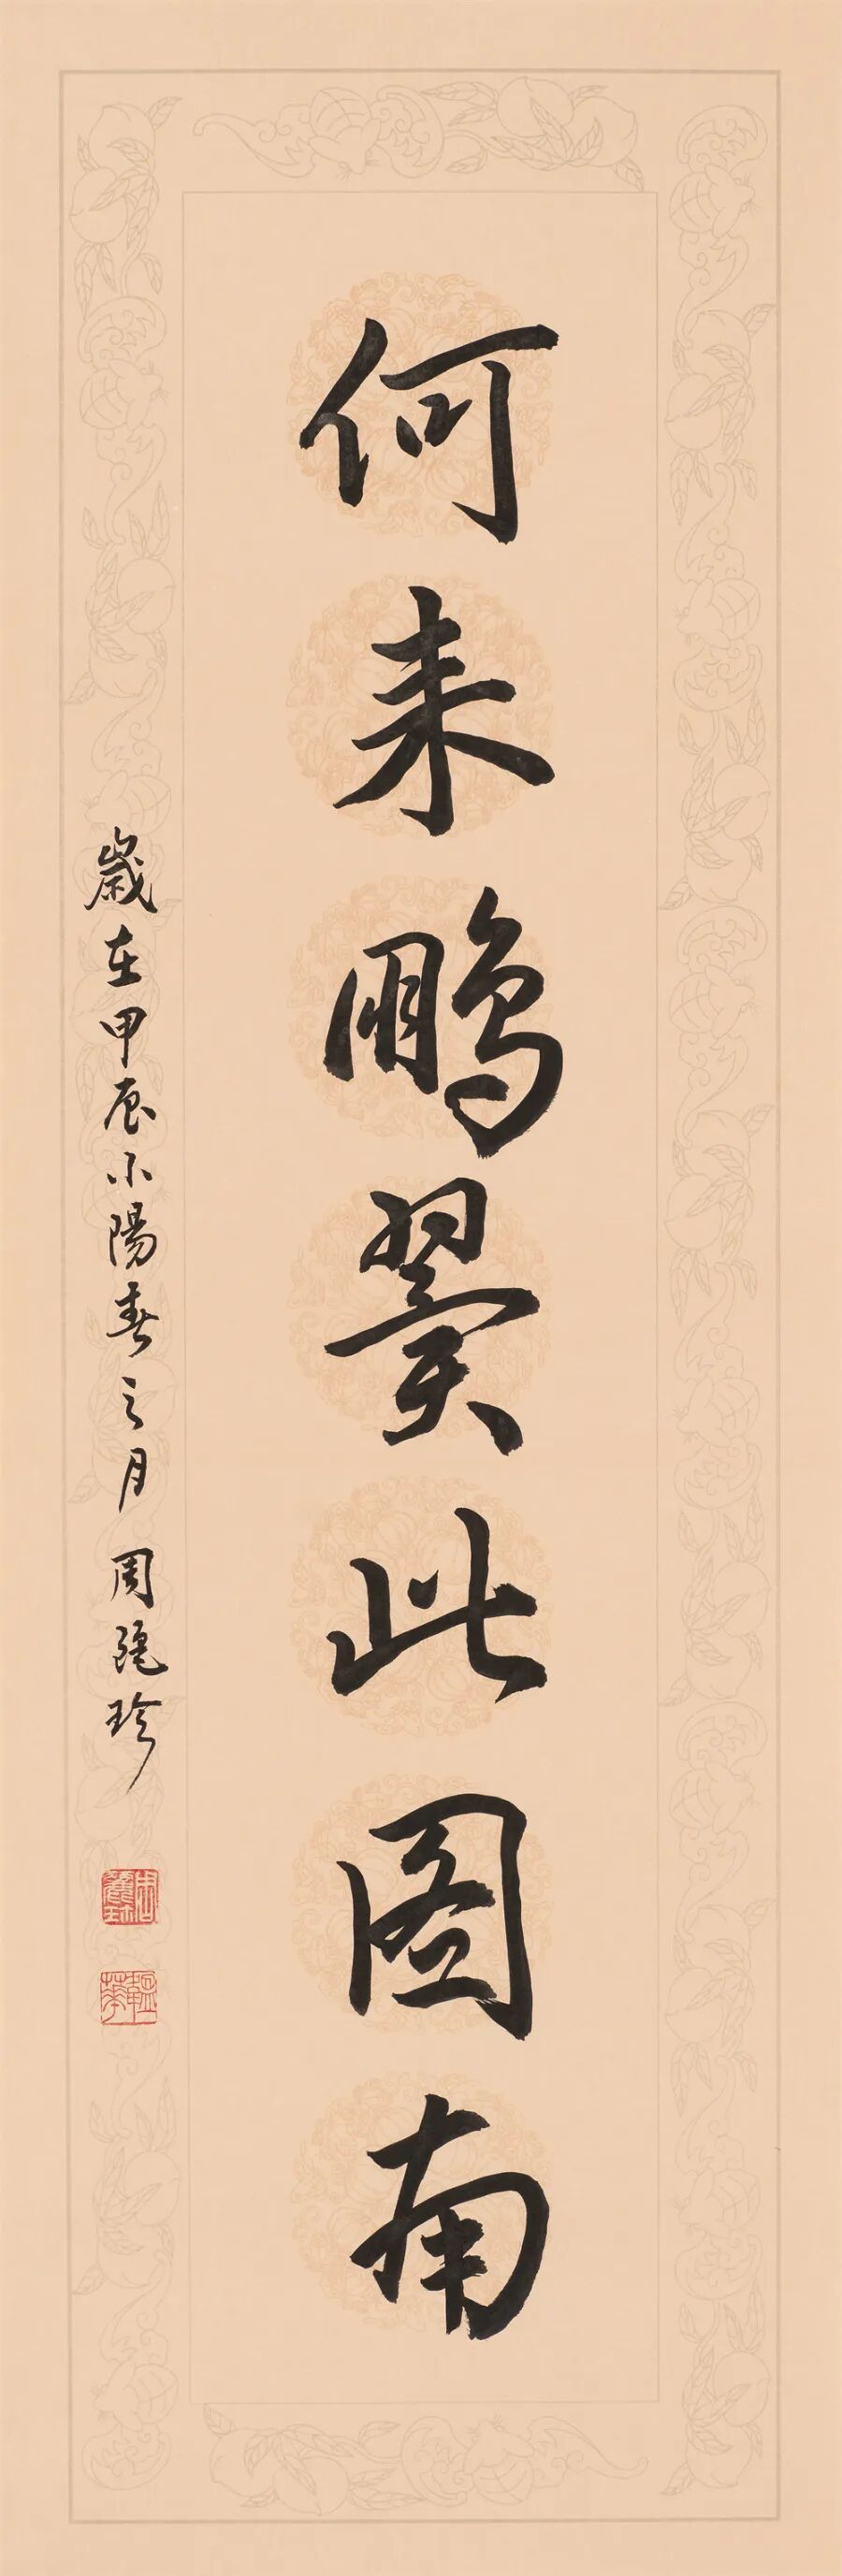 何来鹏翼此图南
歲在甲辰小陽春之月 周麗珍